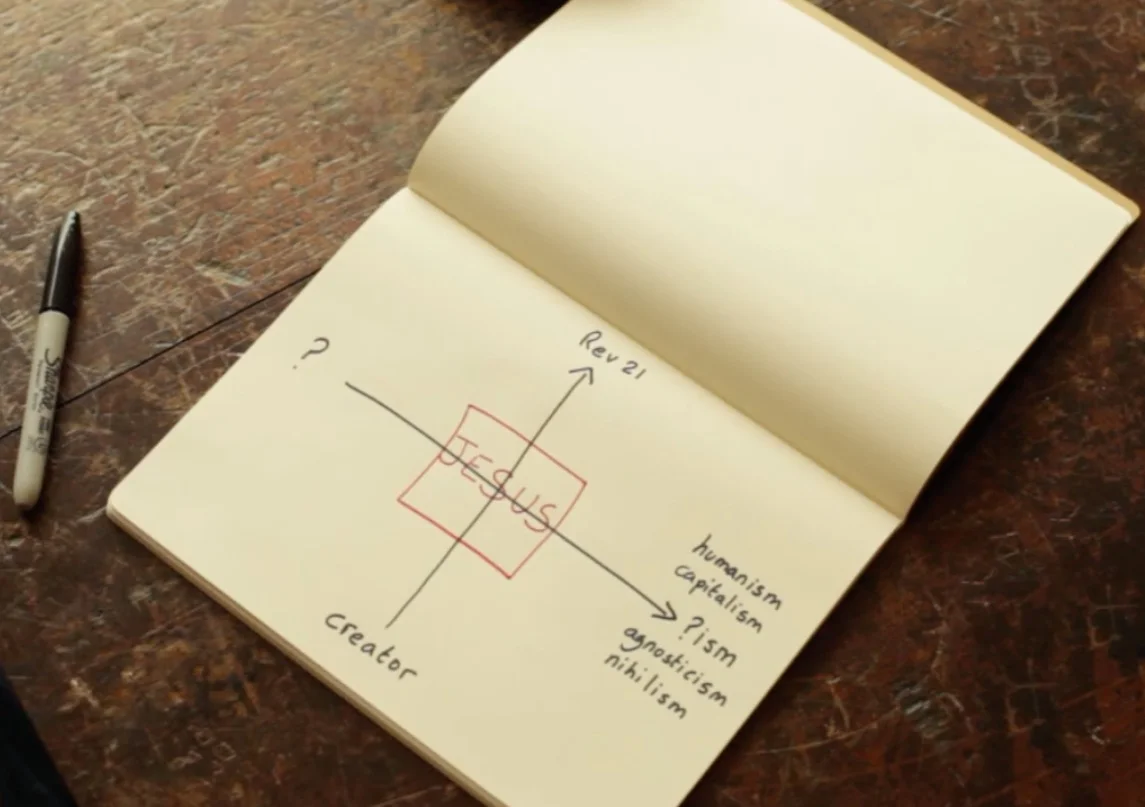 ?
Rev 21
JESUS
Creator
humanism
capitalism
?ism
agnosticism
nihilism
Sharpie